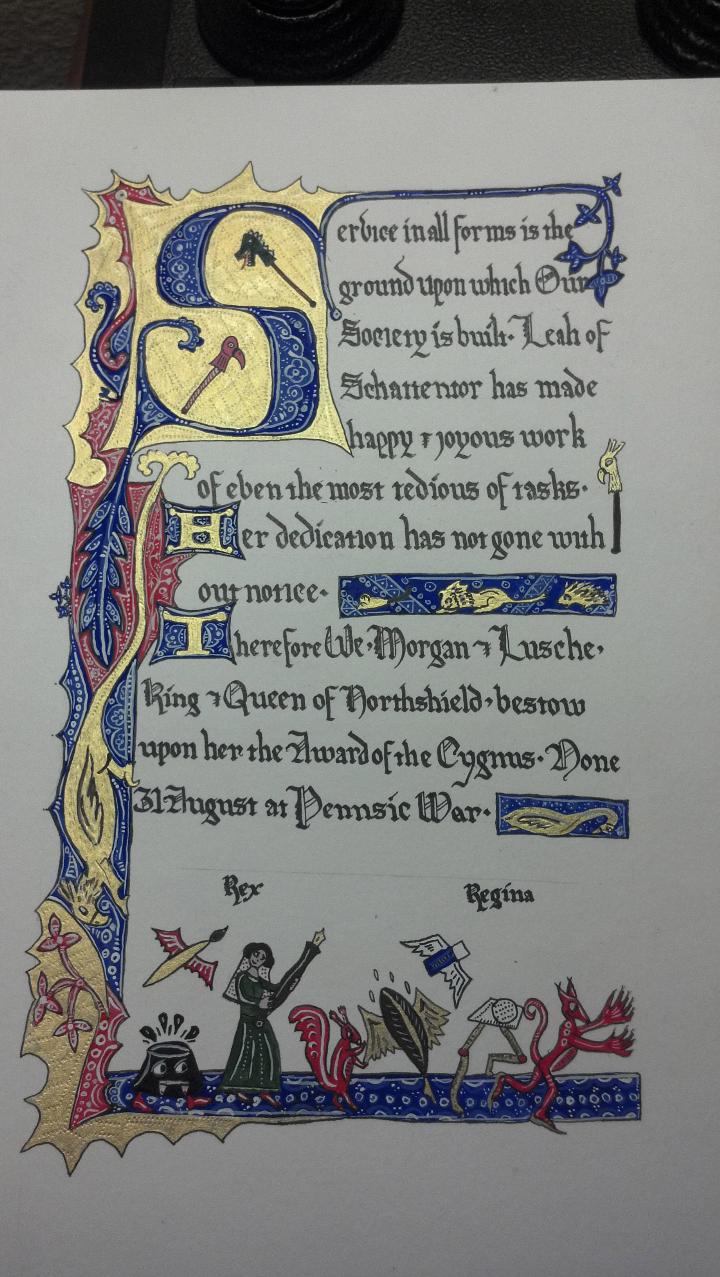 Service in all forms is the
ground upon which Our
Society is built· Leah of
Schattentor has made
happy & joyous work
of even the most tedious of tasks·
Her dedication has not gone with
out notice·
Therefore We·Morgan & Lusche·
King & Queen of Northshield·bestow
upon her the Award of the Cygnus· Done
31 August at Pennsic War·
Rex Regina